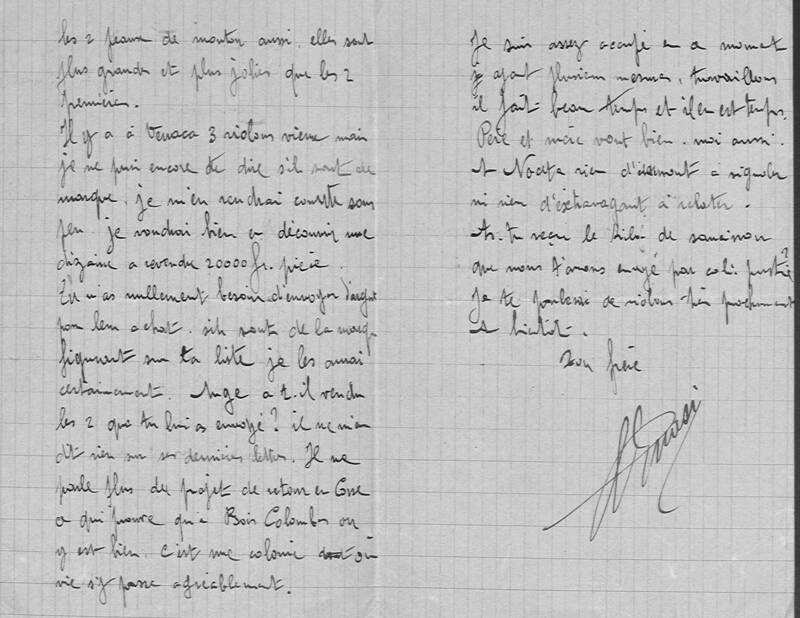 les 2 peaux de mouton aussi. elles sont
plus grandes et plus jolies que les 2
premières.
Il y a à Venaca 3 violons vieux mais
je ne puis encore te dire s'ils sont de
marque. je m'en rendrai compte sous
peu. je voudrai bien en découvrir une
dizaine a revendre 20000 fr. pièce.
Tu n'as nullement besoin d'envoyer d'argent
pour leur achat. s'ils sont de la marque
figurant sur ta liste je les aurai
certainement. Ange a t-il vendu
les 2 que tu lui as envoyé? il ne m'en
dit rien sur ses dernières lettres. Il ne
parle plus du projet de retour en Corse
ce qui prouve qu'à Bois Colombes on
y est bien. c'est une colonie où
vie s'y passe agréablement.
Je suis assez occupé en ce moment
y ayant plusieurs travaillons
il fait beau temps et il en est temps.
Père et mère vont bien. moi aussi.
A rien d'étonnant à signaler
ni rien d'extravagant à relater.
As-tu reçu le kilo de saucisson
que nous t'avons envoyé par coli. postal?
Je te parlerai de violons très prochainement
A bientôt.
Ton frère